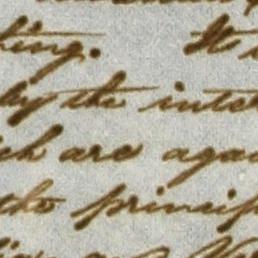 ting. It
by the inte
ich are agai
the princip